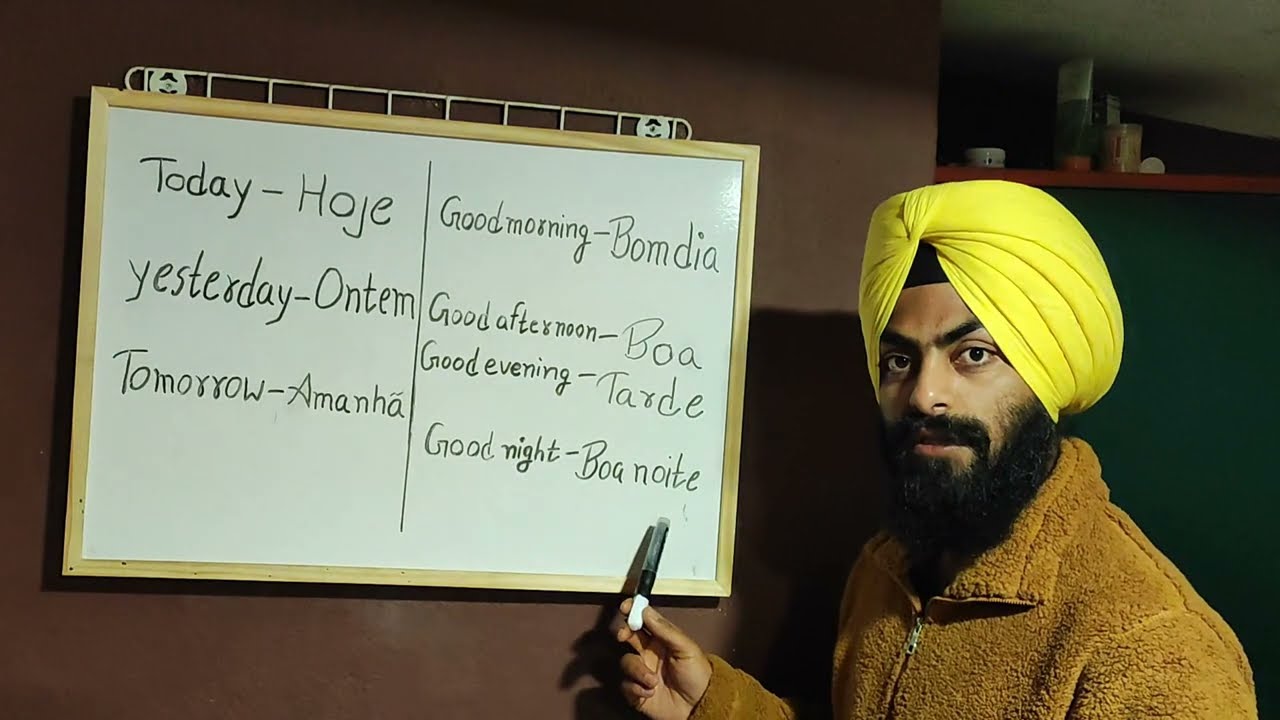 Today - Hoje
yesterday - Ontem
Tomorrow - Amanhã
Good morning - Bom dia
Good afternoon - Boa
Good evening - Tarde
Good night - Boa noite